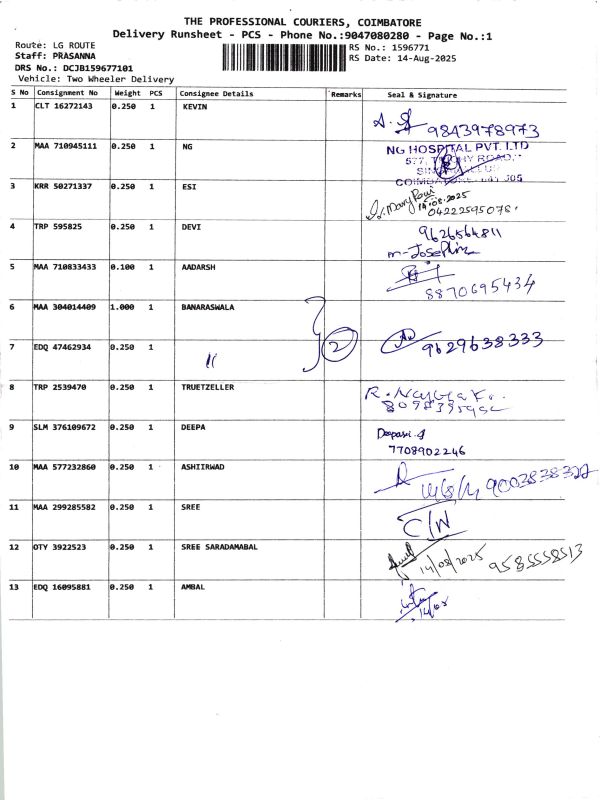 THE PROFESSIONAL COURIERS, COIMBATORE
Delivery Runsheet - PCS - Phone No.:9047080280 - Page No.:1
Route: LG ROUTE
RS No.: 1596771
Staff: PRASANNA
RS Date: 14-Aug-2025
DRS No.: DCJB159677101
Vehicle: Two Wheeler Delivery
S No Consignment No Weight PCS Consignee Details Remarks Seal & Signature
1 CLT 16272143 0.250 1 KEVIN
9843978973
2 MAA 710945111 0.250 1 NG
NG HOSPITAL PVT. LTD
577, TRICHY ROAD,
3 KRR 50271337 0.250 1 ESI
14.08.2025
04222595078.
4 TRP 595825 0.250 1 DEVI
9626564811
m-Josephin
5 MAA 710833433 0.100 1 AADARSH
8870695434
6 MAA 304014409 1.000 1 BANARASWALA
7 EDQ 47462934 0.250 1 〃 2 9629638333
8 TRP 2539470 0.250 1 TRUETZELLER
9 SLM 376109672 0.250 1 DEEPA
7708902246
10 MAA 577232860 0.250 1 ASHIIRWAD
11 MAA 299285582 0.250 1 SREE
C/W
12 OTY 3922523 0.250 1 SREE SARADAMABAL
14/08/2025 9585558513
13 EDQ 16095881 0.250 1 AMBAL
14/08